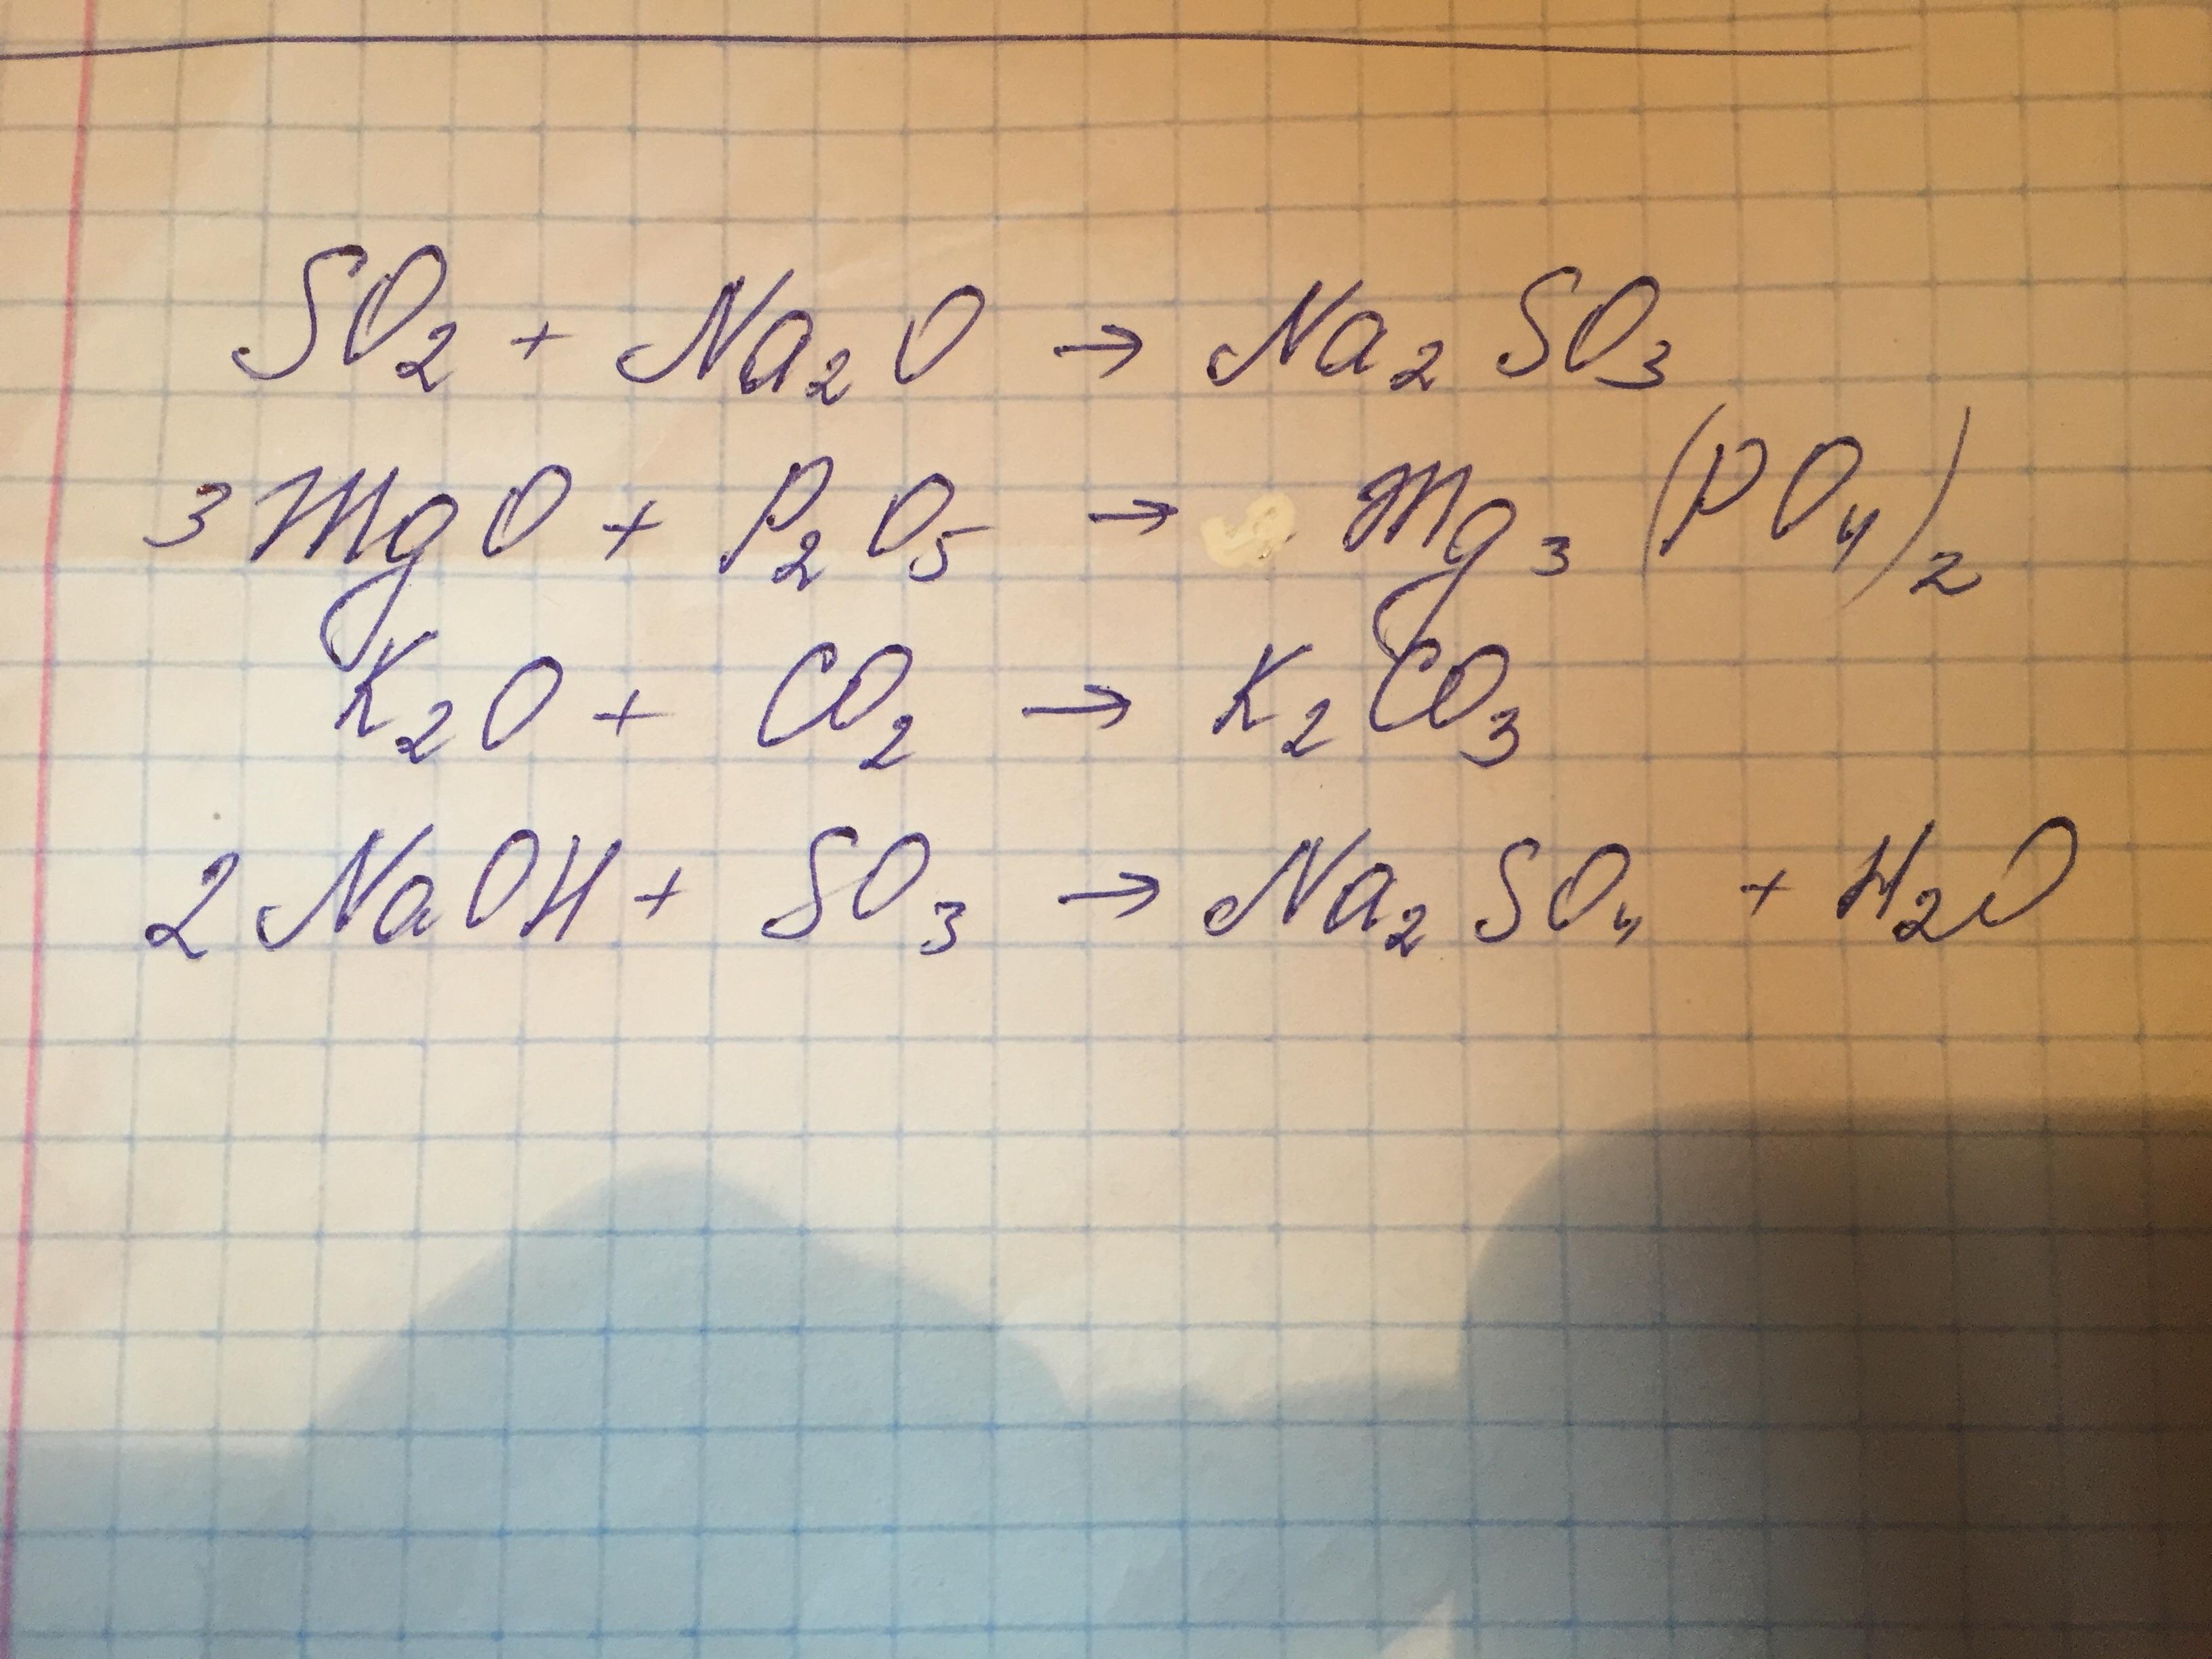 SO₂ + Na₂O → Na₂SO₃
3MgO + P₂O₅ → Mg₃(PO₄)₂
K₂O + CO₂ → K₂CO₃
2NaOH + SO₃ → Na₂SO₄ + H₂O